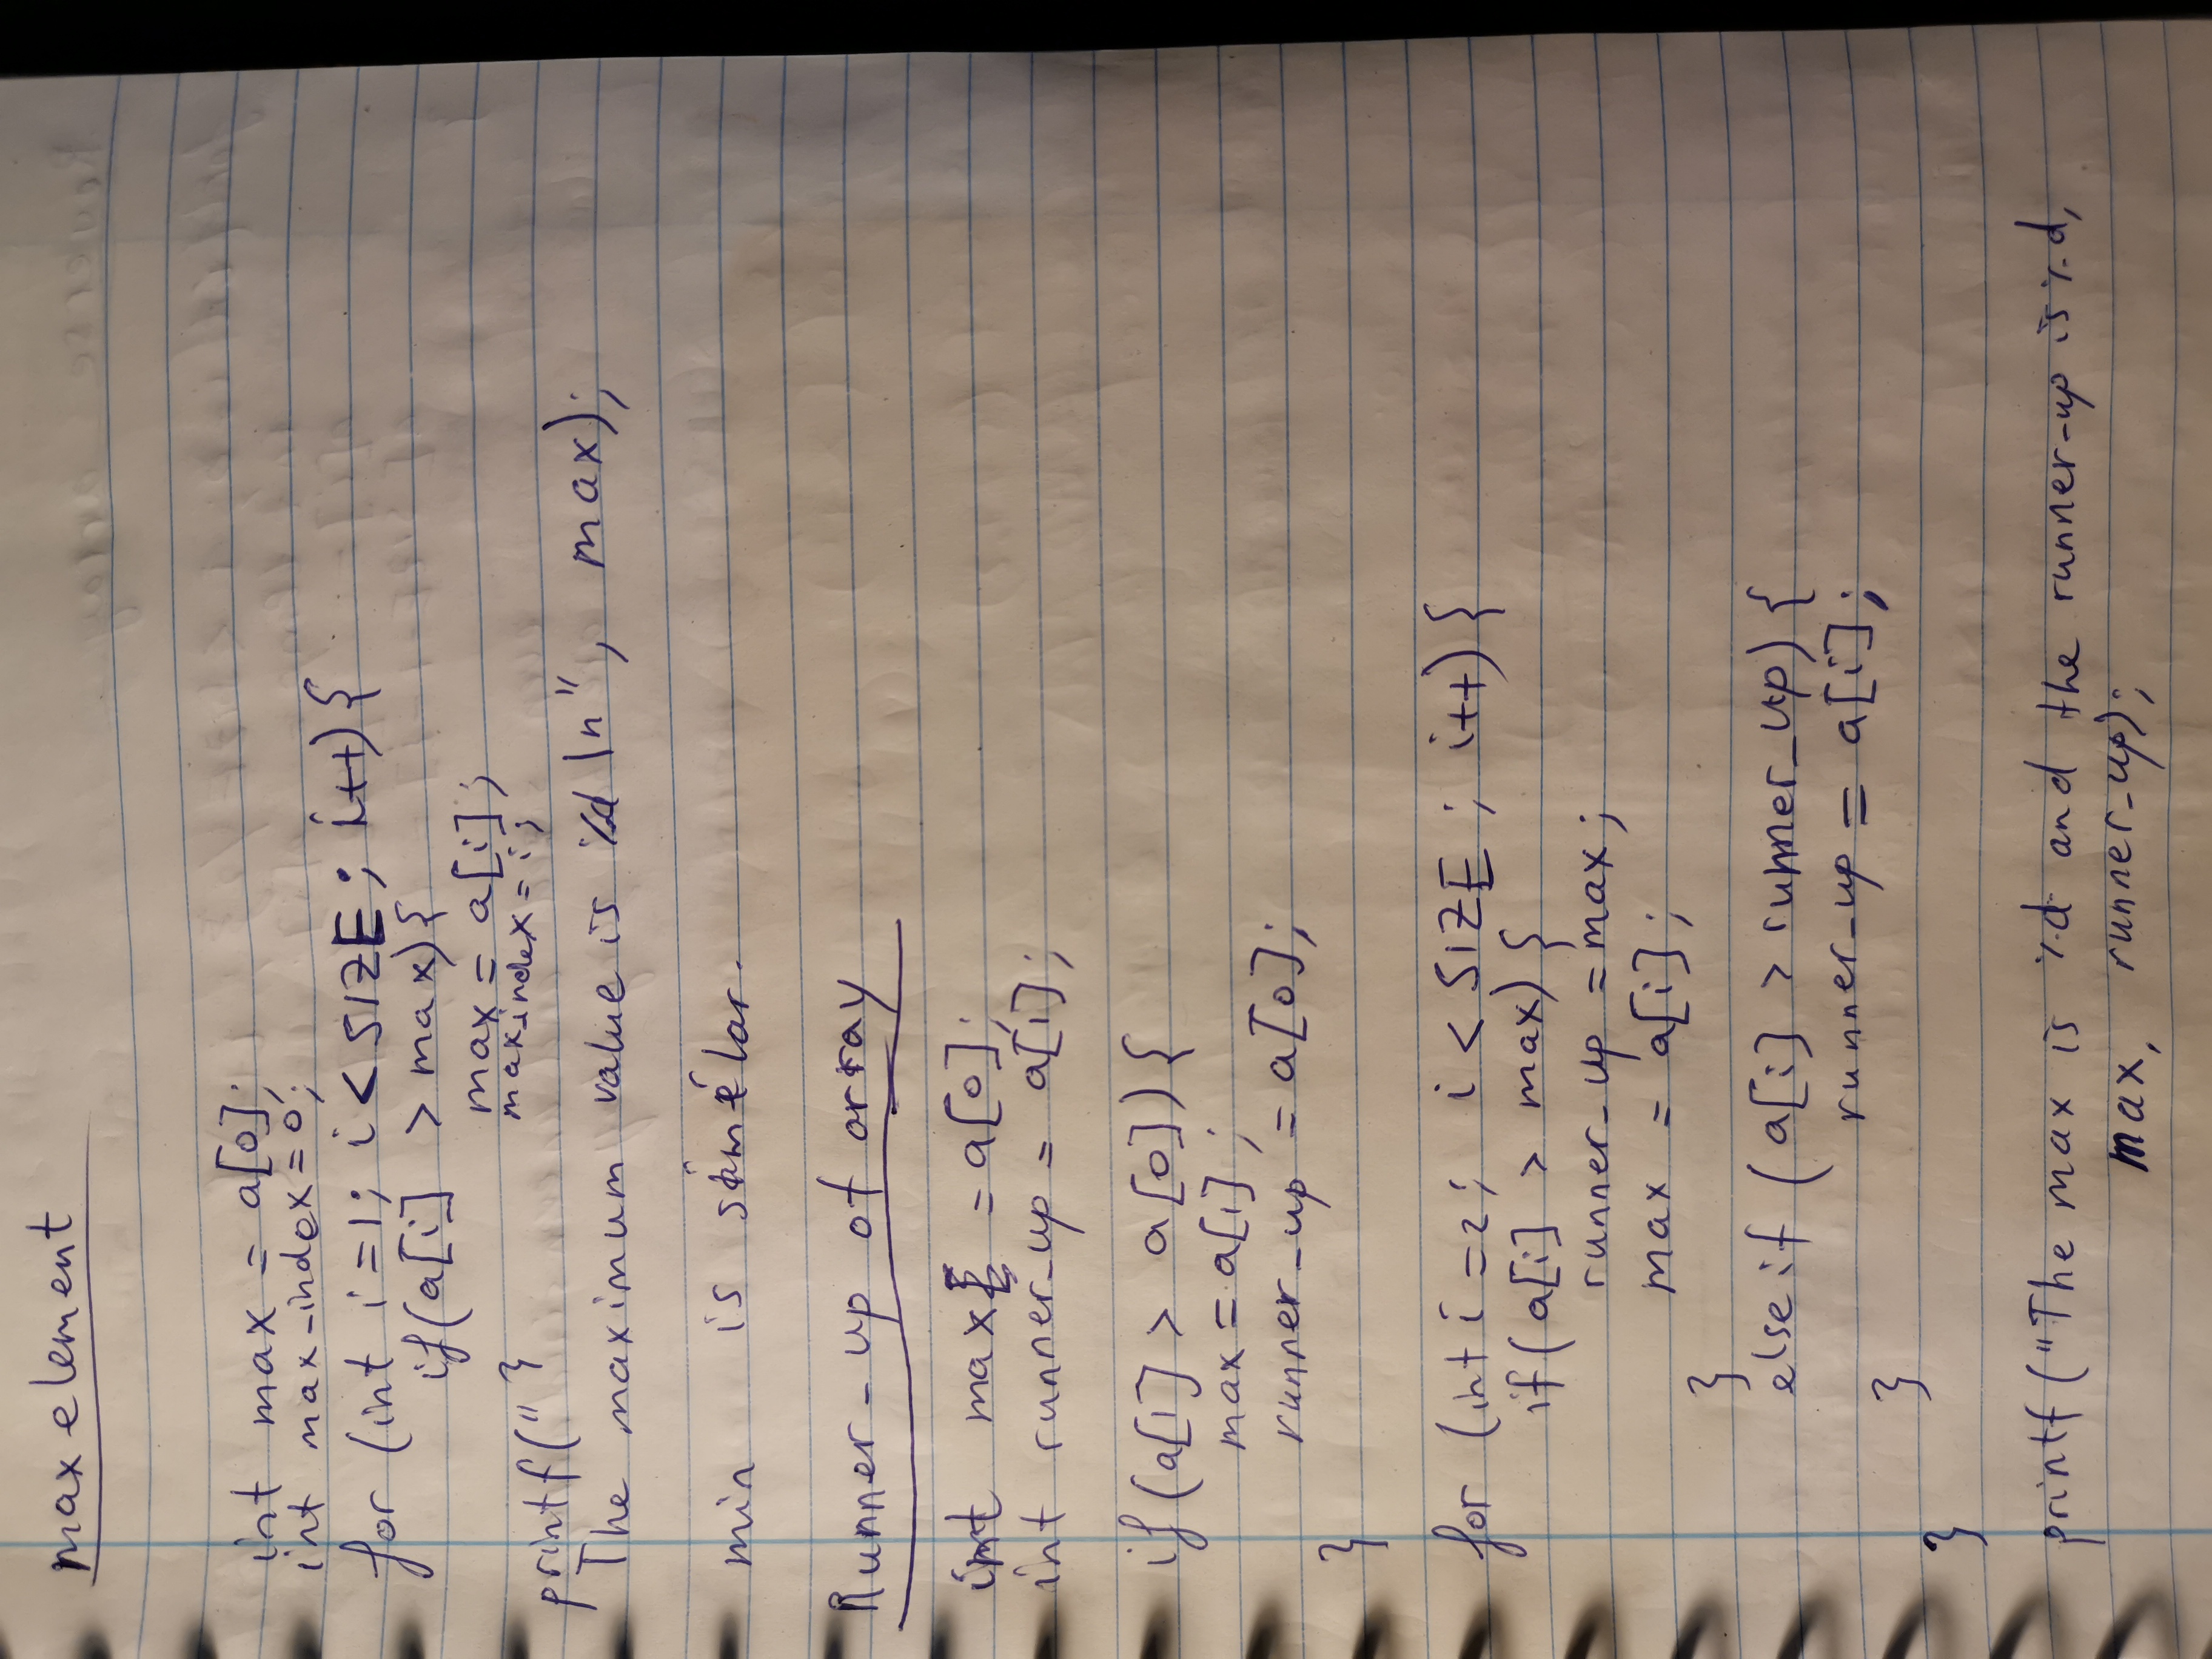 max element
int max = a[0];
int max_index = 0;
for (int i = 1; i < SIZE; i++) {
if (a[i] > max) {
max = a[i];
max_index = i;
}
printf("
The maximum value is %d \n", max);
min is similar.
Runner-up of array
int max = a[0];
int runner_up = a[1];
if (a[1] > a[0]) {
max = a[1];
runner_up = a[0];
}
for (int i = 2; i < SIZE; i++) {
if (a[i] > max) {
runner_up = max;
max = a[i];
}
else if (a[i] > runner_up) {
runner_up = a[i];
}
}
printf ("The max is %d and the runner-up is %d,
max, runner_up);